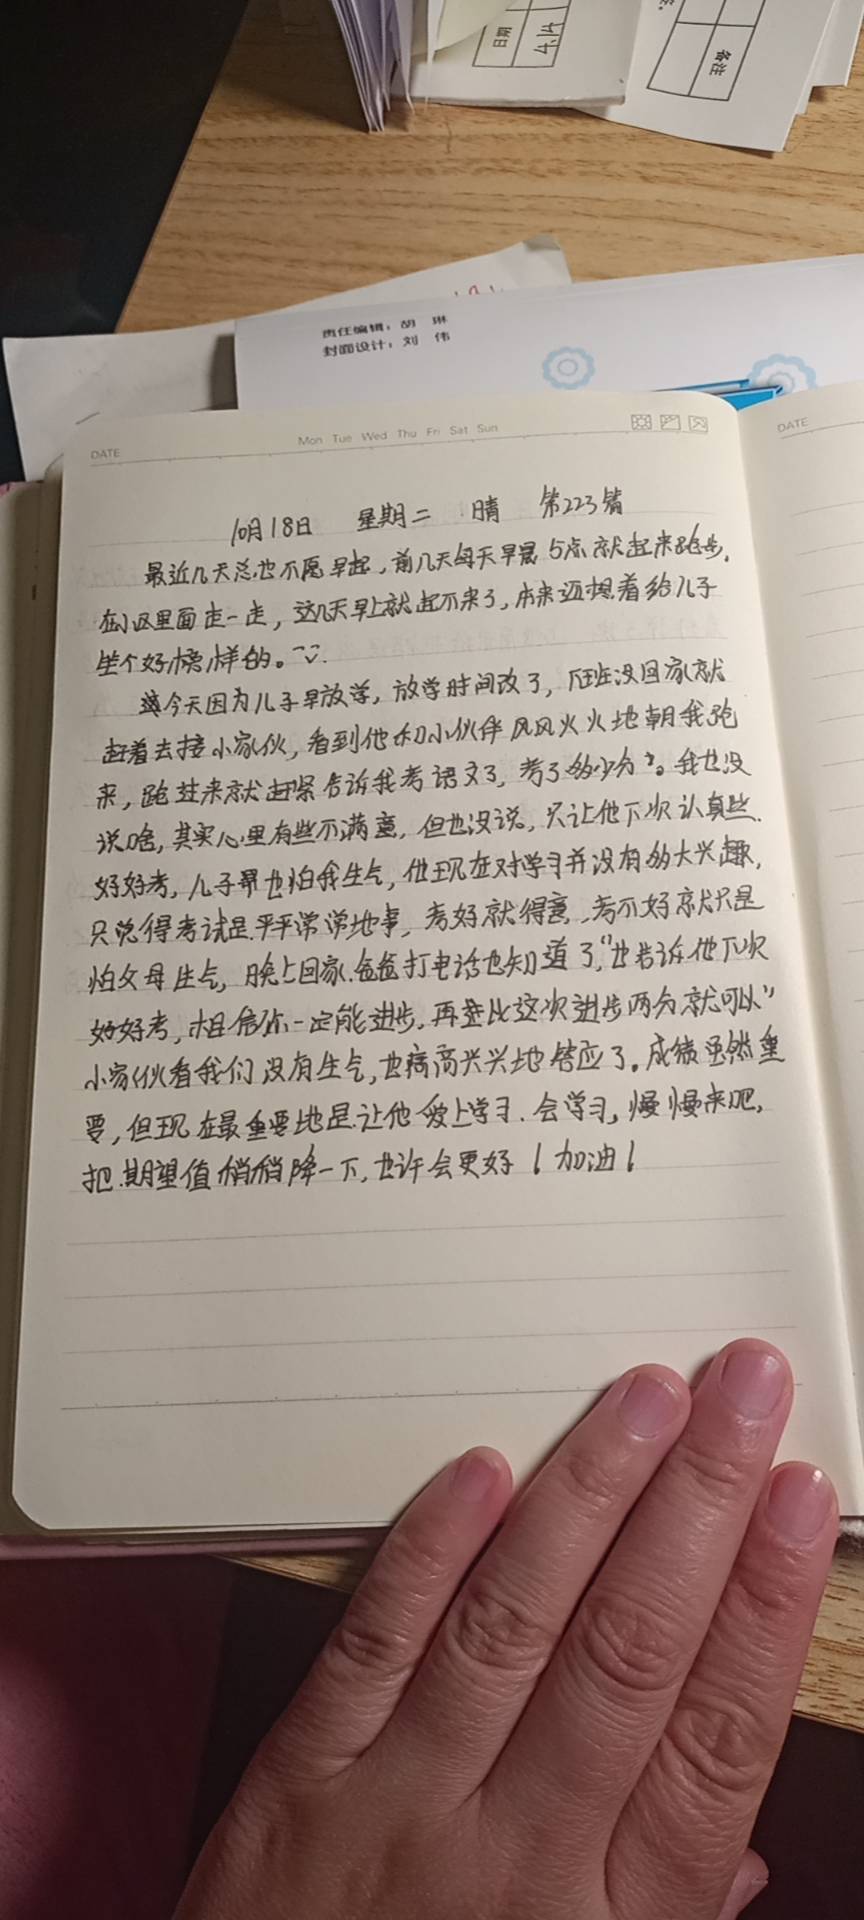 日期
备注
责任编辑：胡 琳
封面设计：刘 伟
DATE
Mon Tue Wed Thu Fri Sat Sun
DATE
10月18日 星期二 晴 第223篇
最近几天总也不愿早起，前几天每天早晨5点就起来跑步，
在小区里面走一走，这几天早上就起不来了，本来还想着给儿子
坐个好榜样的。
今天因为儿子早放学，放学时间改了，下班没回家就
赶着去接小家伙，看到他和小伙伴风风火火地朝我跑
来，跑过来就赶紧告诉我考语文了，考了多少分。我也没
说啥，其实心里有些不满意，但也没说，只让他下次认真些，
好好考，儿子也怕我生气，他现在对学习并没有多大兴趣，
只觉得考试是平平常常地事，考好就得意，考不好就只是
怕父母生气，晚上回家，爸爸打电话也知道了，“也告诉他下次
好好考，相信你一定能进步，再比这次进步两分就可以”
小家伙看我们没有生气，也高高兴兴地答应了。成绩虽然重
要，但现在最重要地是让他爱上学习，会学习，慢慢来吧，
把期望值稍稍降一下，也许会更好！加油！